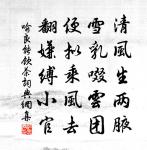 清風生两腋
雪乳啜雲團
便拟乘風去
翻嫌縛小官
喻良能詩飲茶詞典網集